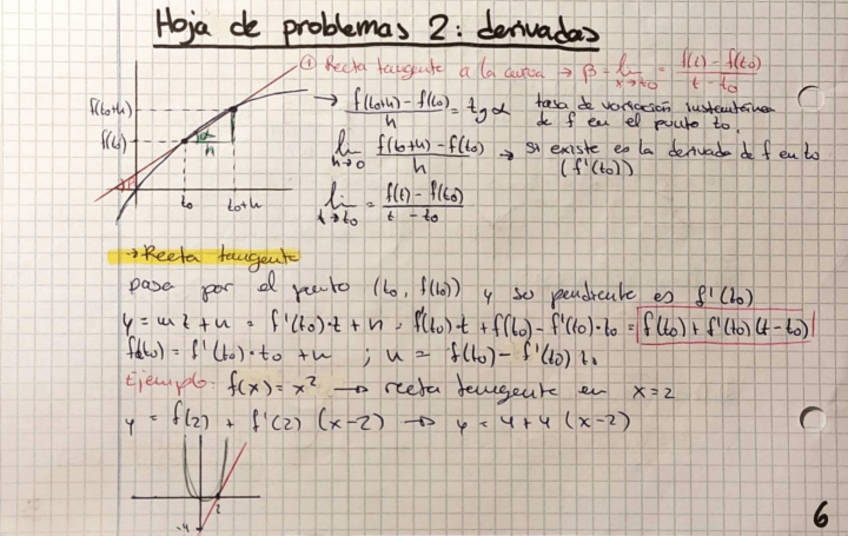 Hoja de problemas 2: derivadas
① Recta tangente a la curva → β = lim x→t₀ = (f(t) - f(t₀))/(t - t₀)
f(t₀+h)
f(t₀)
α
h
t₀
t₀+h
→ (f(t₀+h) - f(t₀))/h = tg α tasa de variación instantánea de f en el punto t₀.
lim h→0 (f(t₀+h) - f(t₀))/h → si existe es la derivada de f en t₀ (f'(t₀))
lim t→t₀ = (f(t) - f(t₀))/(t - t₀)
→ Recta tangente
pasa por el punto (t₀, f(t₀)) y su pendiente es f'(t₀)
y = mt + n = f'(t₀)·t + n = f'(t₀)·t + f(t₀) - f'(t₀)·t₀ = f(t₀) + f'(t₀)(t - t₀)
f(t₀) = f'(t₀)·t₀ + n ; n = f(t₀) - f'(t₀) t₀
Ejemplo: f(x) = x² → recta tangente en x=2
y = f(2) + f'(2) (x-2) → y = 4+4 (x-2)
2
-4
6